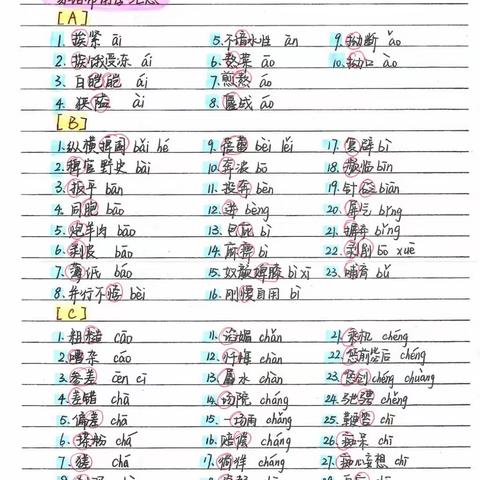 [A]
1. 挨紧 āi
2. 挨饿受冻 ái
3. 白皑皑 ái
4. 狭隘 ài
5. 不谙水性 ān
6. 熬菜 āo
7. 煎熬 áo
8. 鏖战 áo
9. 拗断 ǎo
10. 拗口 ào
[B]
1. 纵横捭阖 bǎi hé
2. 稗官野史 bài
3. 扳平 bān
4. 同胞 bāo
5. 炮羊肉 bāo
6. 剥皮 bāo
7. 薄纸 báo
8. 并行不悖 bèi
9. 蓓蕾 bèi lěi
10. 奔波 bō
11. 投奔 bèn
12. 迸 bèng
13. 包庇 bì
14. 麻痹 bì
15. 奴颜婢膝 bì xī
16. 刚愎自用 bì
17. 复辟 bì
18. 濒临 bīn
19. 针砭 biān
20. 屏气 bǐng
21. 摒弃 bìng
22. 剥削 bō xuē
23. 哺育 bǔ
[C]
1. 粗糙 cāo
2. 嘈杂 cáo
3. 参差 cēn cī
4. 差错 chā
5. 偏差 chā
6. 搽粉 chá
7. 猹 chá
11. 谄媚 chǎn
12. 忏悔 chàn
13. 羼水 chàn
14. 场院 cháng
15. 一场雨 cháng
16. 赔偿 cháng
17. 徜徉 cháng
21. 乘机 chéng
22. 惩前毖后 chéng
23. 惩创 chéng chuàng
24. 驰骋 chěng
25. 鞭笞 chī
26. 痴呆 chī
27. 痴心妄想 chī